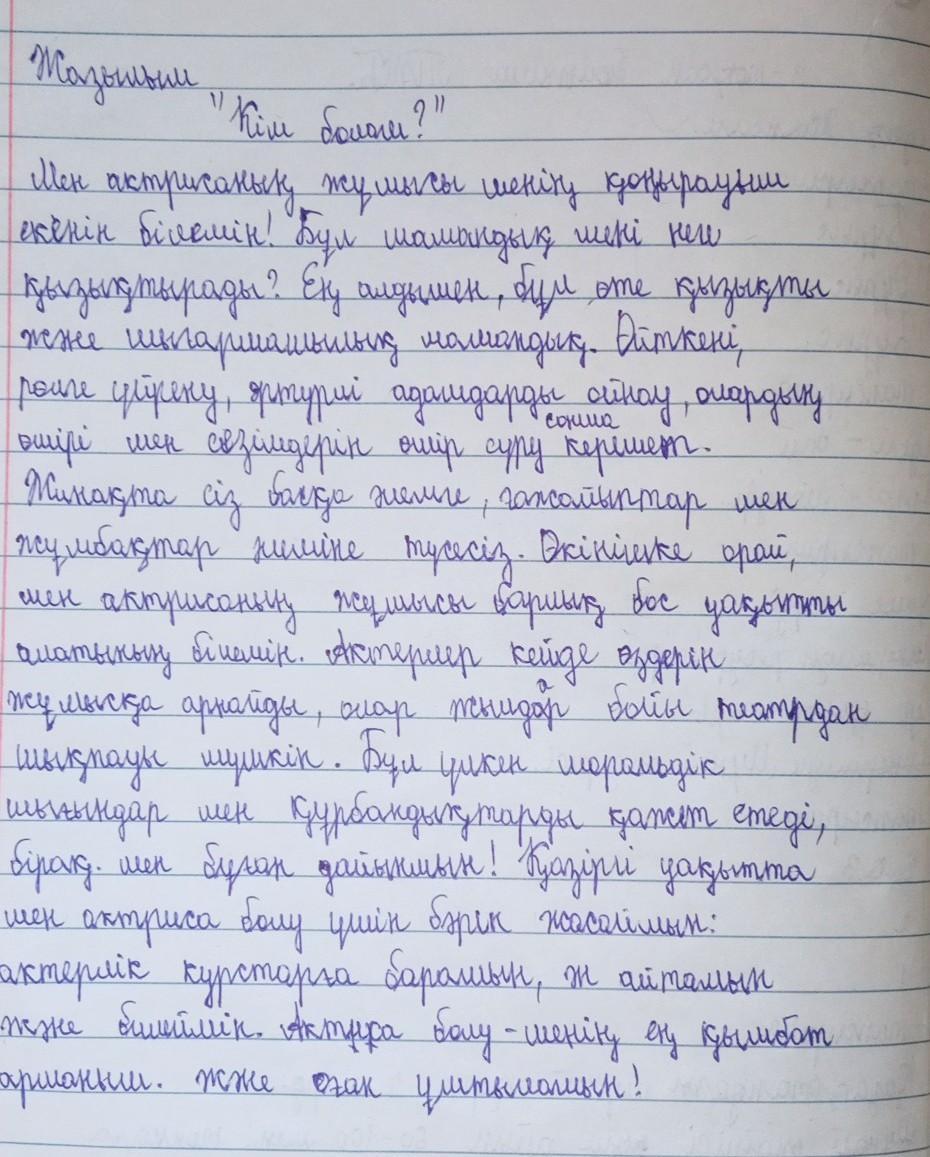 Жазылым
"Кім болам?"
Мен актрисаның жұмысы менің қоңырауым
екенін білемін! Бұл мамандық мені неге
қызықтырады? Ең алдымен, бұл өте қызықты
және шығармашылық мамандық. Өйткені,
рөлге үйрену, әртүрлі адамдарды ойнау, олардың
өмірі мен сезімдерін өмір сүру сонша керемет.
Жинақта сіз басқа әлемге, ғажайыптар мен
жұмбақтар әлеміне түсесіз. Өкінішке орай,
мен актрисаның жұмысы барлық бос уақытты
алатының білемін. Актерлер кейде өздерін
жұмысқа арнайды, олар жылдар бойы театрдан
шықпауы мүмкін. Бұл үлкен моральдік
шығындар мен құрбандықтарды қажет етеді,
бірақ. мен бұған дайынмын! Қазіргі уақытта
мен актриса болу үшін бәрін жасаймын:
актерлік курстарға барамын, ән айтамын
және билеймін. Актриса болу - менің ең қымбат
арманым. және оған ұмтыламын!